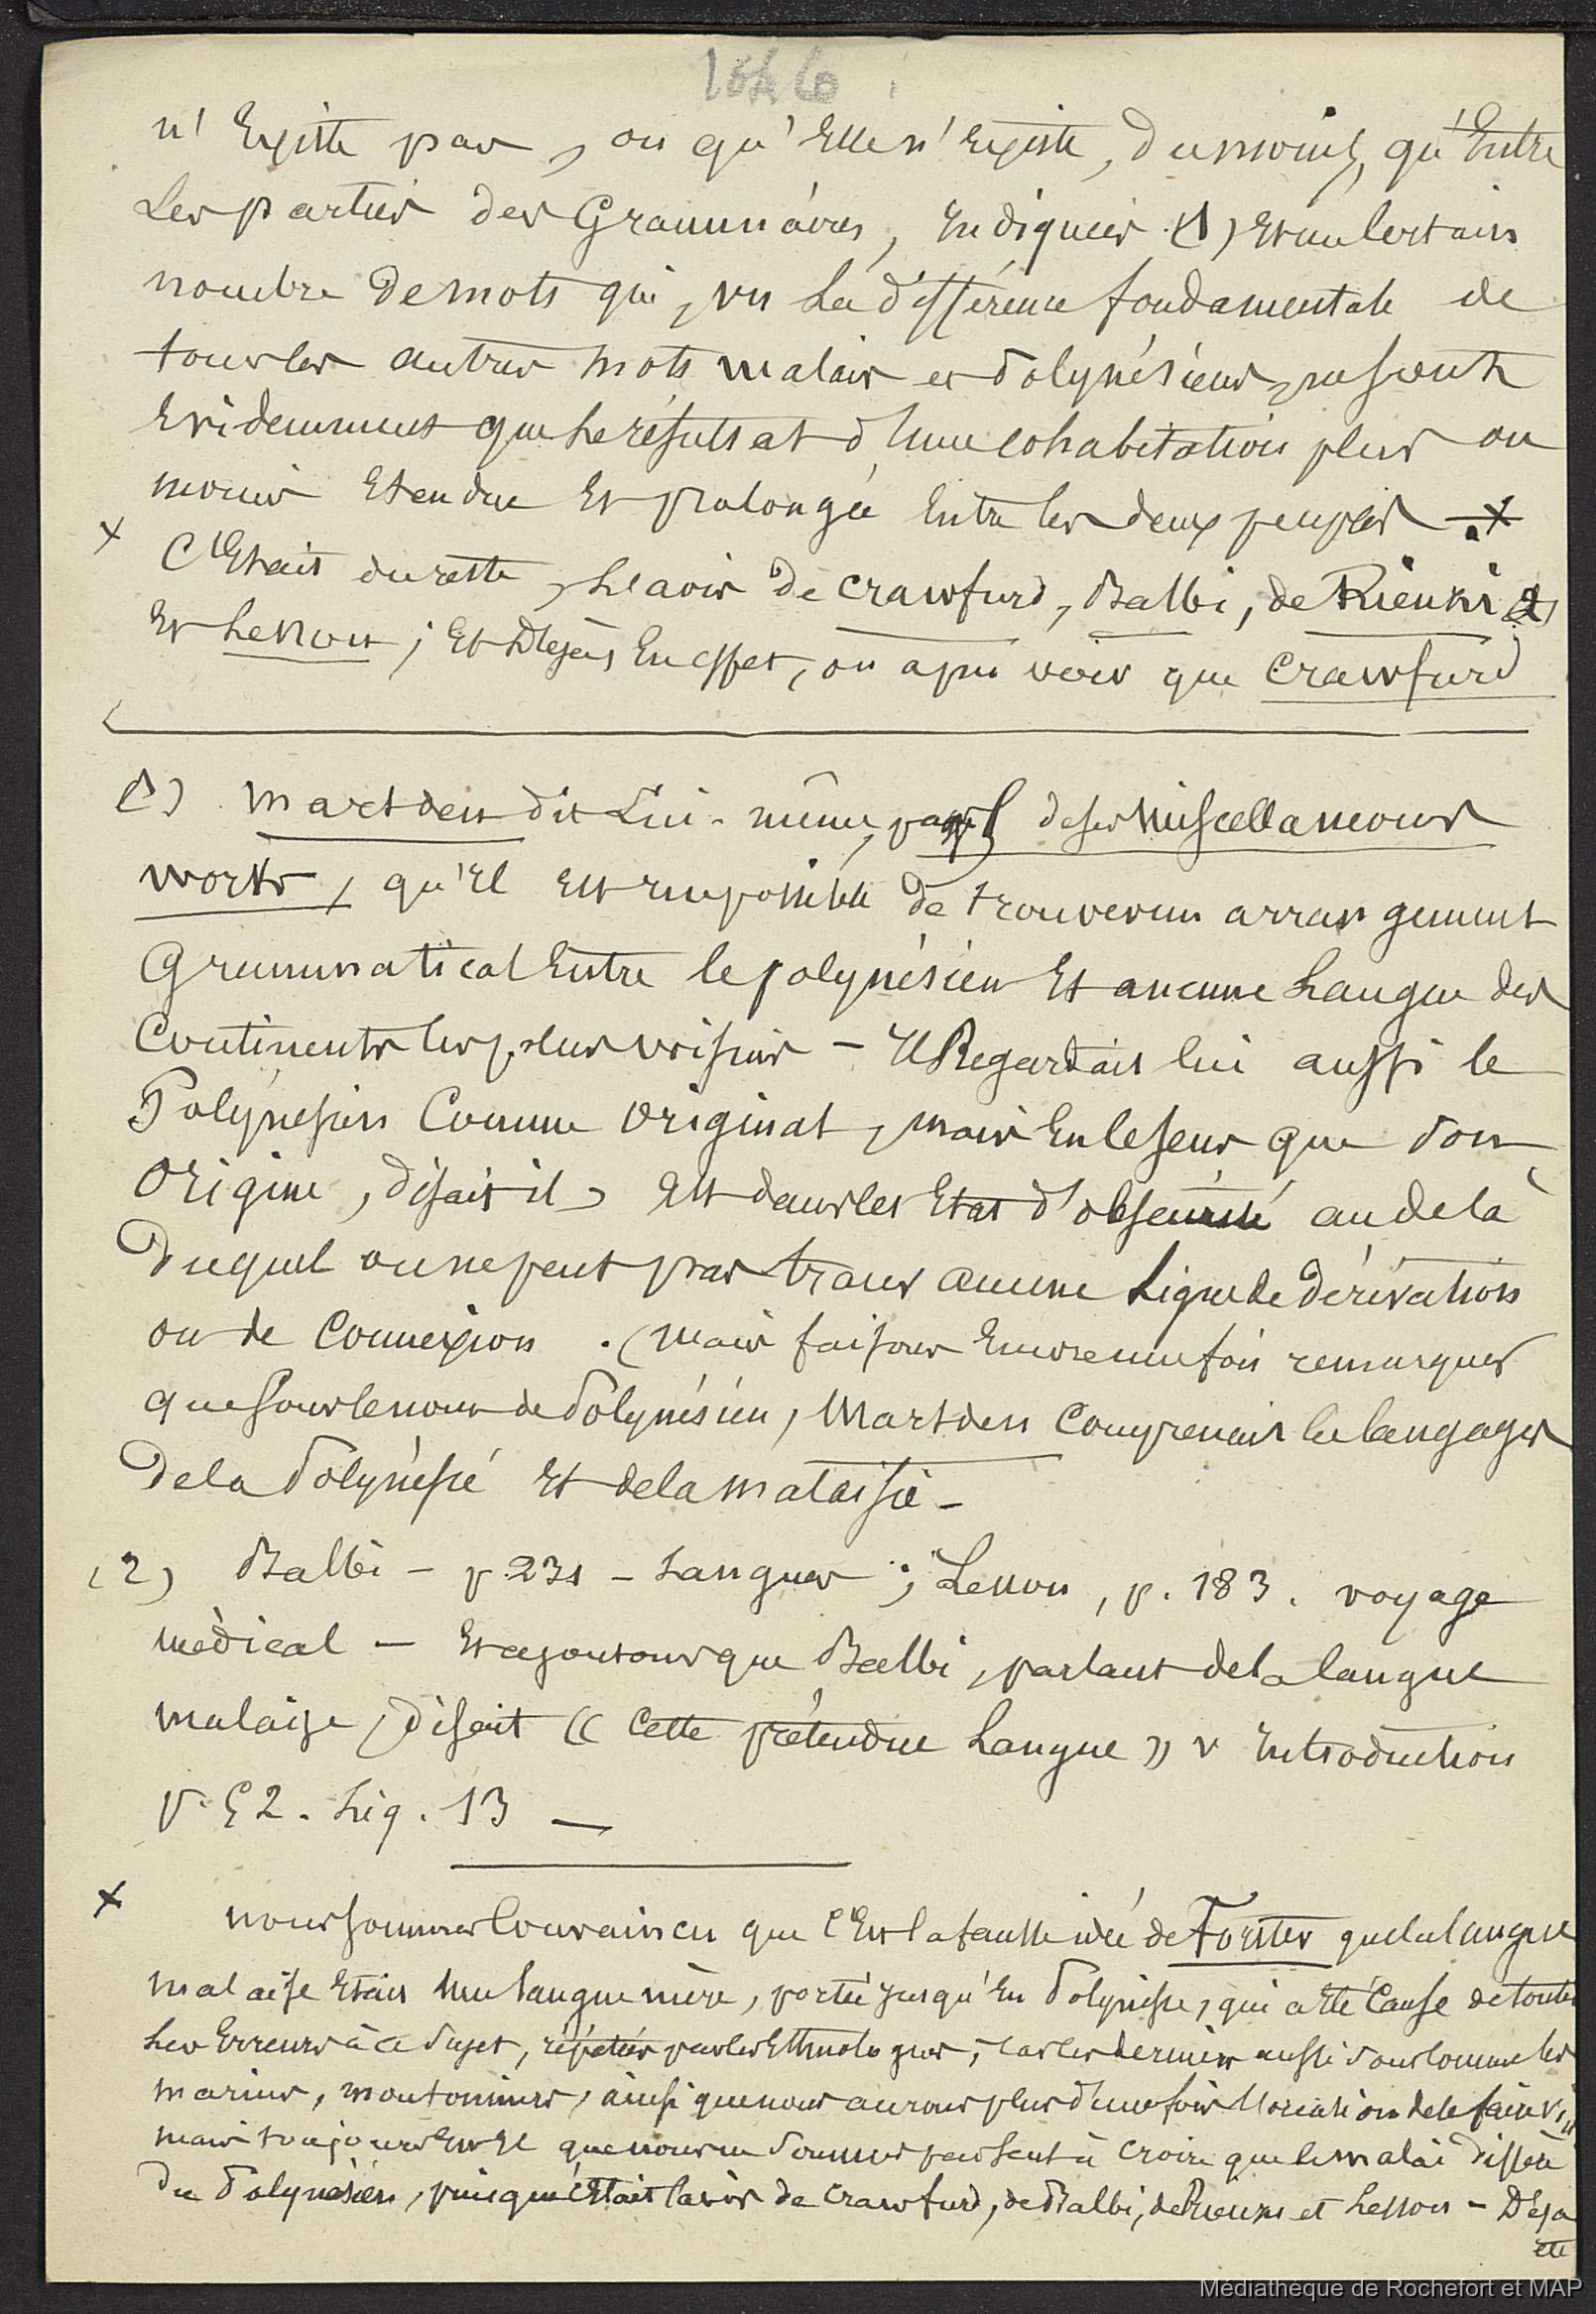 n'Existe pas, ou qu'Elle n'Existe, du moins, qu'Entre
Les parties des Grammaires, Indiquées (1) Et un Certain
nombre de mots qui, vu La différence fondamentale de
tous les autres mots malais et Polynésiens, ne sont
Evidemment que Le résultat d'Une cohabitation plus ou
moins Etendue Et prolongée Entre les deux peuples . x
x C'Etait du reste, L'avis de Crawfurd, Balbi, de Rienzi 2)
Et Lesson ; Et Déjà, En effet, on a pu voir que Crawfurd
(1) Marsden dit Lui-même, page de ses Miscellaneous
works, qu'Il Est Impossible de trouver un arrangement
Grammatical Entre le polynésien Et aucune Langue des
Continents les plus voisins - Il Regardait lui aussi le
Polynésien Comme Original, mais En le sens que Son
Origine, disait il, Est dans les Etat d'obscurité au delà
Duquel on ne peut pas tracer aucune Ligne de Dérivation
ou de Connexion . (Mais faisons Encore une fois remarquer
que Sous le nom de Polynésien, Marsden Comprenait les langages
De la Polynésie Et de la Malaisie -
(2) Balbi - p. 231 - Langues ; Lesson, p. 183. voyage
médical - Et ajoutons que Balbi, parlant de la langue
malaise, disait « Cette prétendue Langue » v Introduction
p. 92. Lig. 13 —
x nous sommes Convaincu que C'Est la fausse idée de Forster que la langue
malaise Etait Une langue mère, portée jusqu'En Polynésie, qui a Eté Cause de toutes
Les Erreurs à ce Sujet, répétées par les Ethnologues ; car ces derniers aussi sont comme les
marins, moutonniers, ainsi que nous aurons plus d'une fois l'occasion de le faire voir
mais toujours Est Il que nous ne Sommes pas Seul à Croire que le malai diffère
du Polynésien, puisque c'Etait l'avis de Crawfurd, de Balbi, de Rienzi et Lesson - Déjà
etc
Médiathèque de Rochefort et MAP